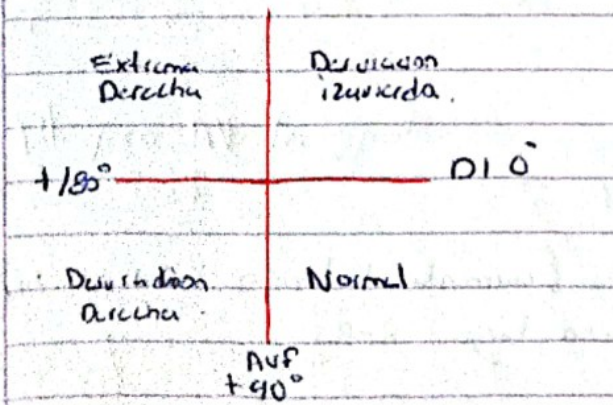 Extrema
Derecha
Desviacion
izquierda.
+180°
DI 0°
Desviacion
Derecha
Normal
AVF
+90°